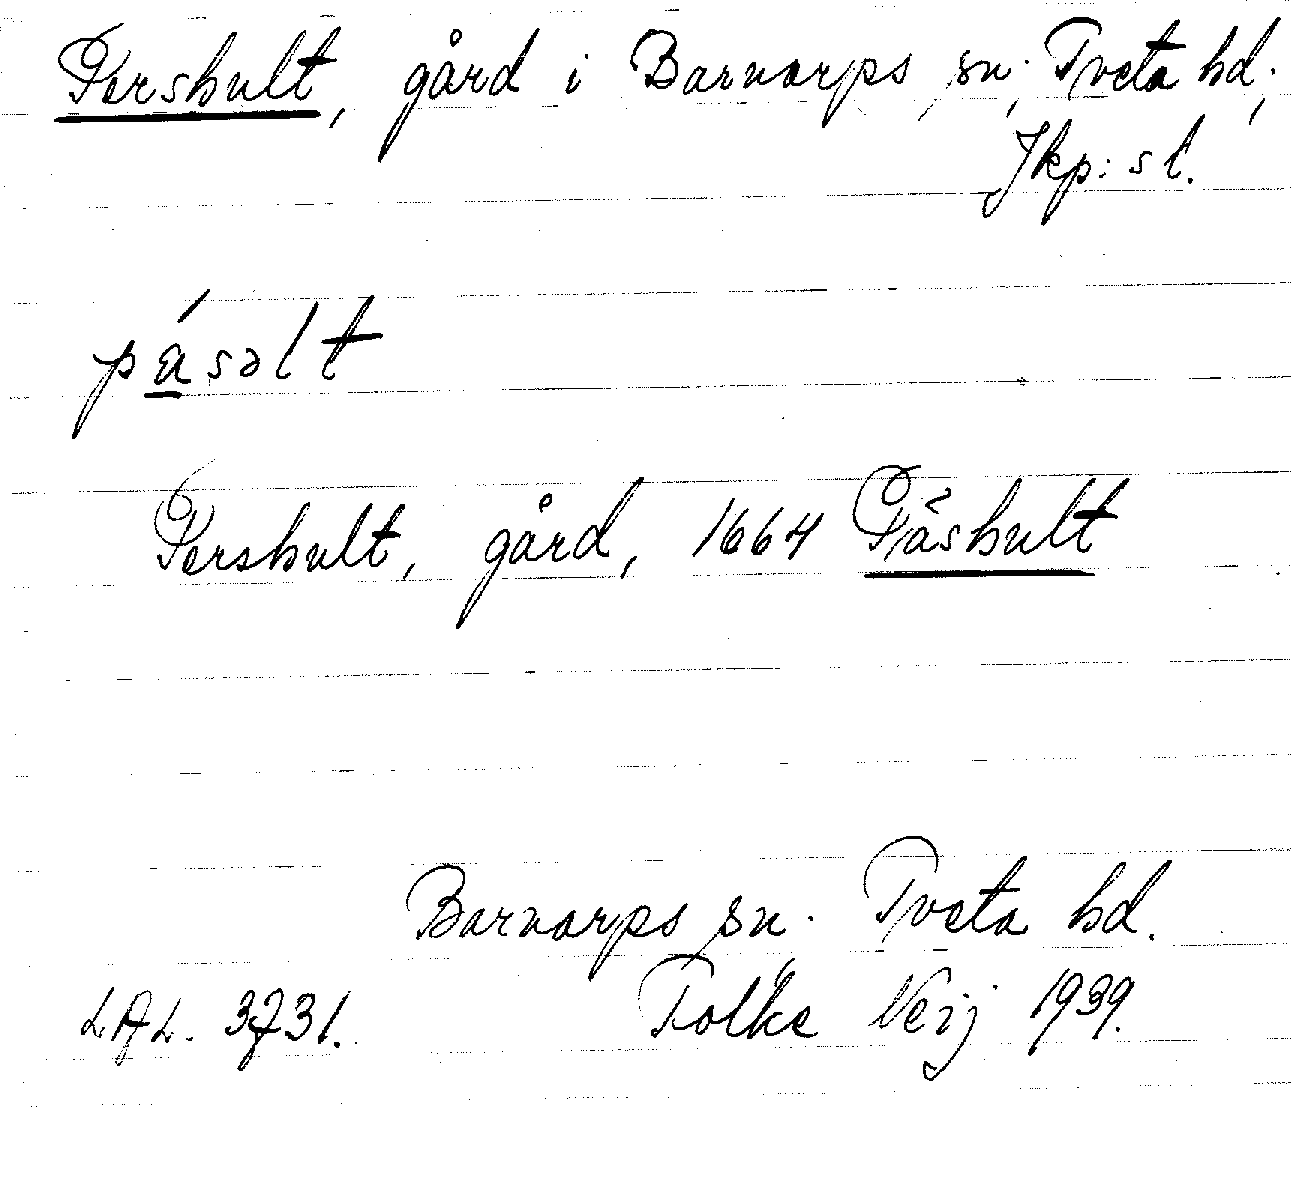 Pershult, gård i Barnarps sn, Tveta hd;
Jkp:s l.
pásəlt
Pershult, gård, 1664 Påshult
Barnarps sn. Tveta hd.
LAL. 3731. Folke Neij 1939.